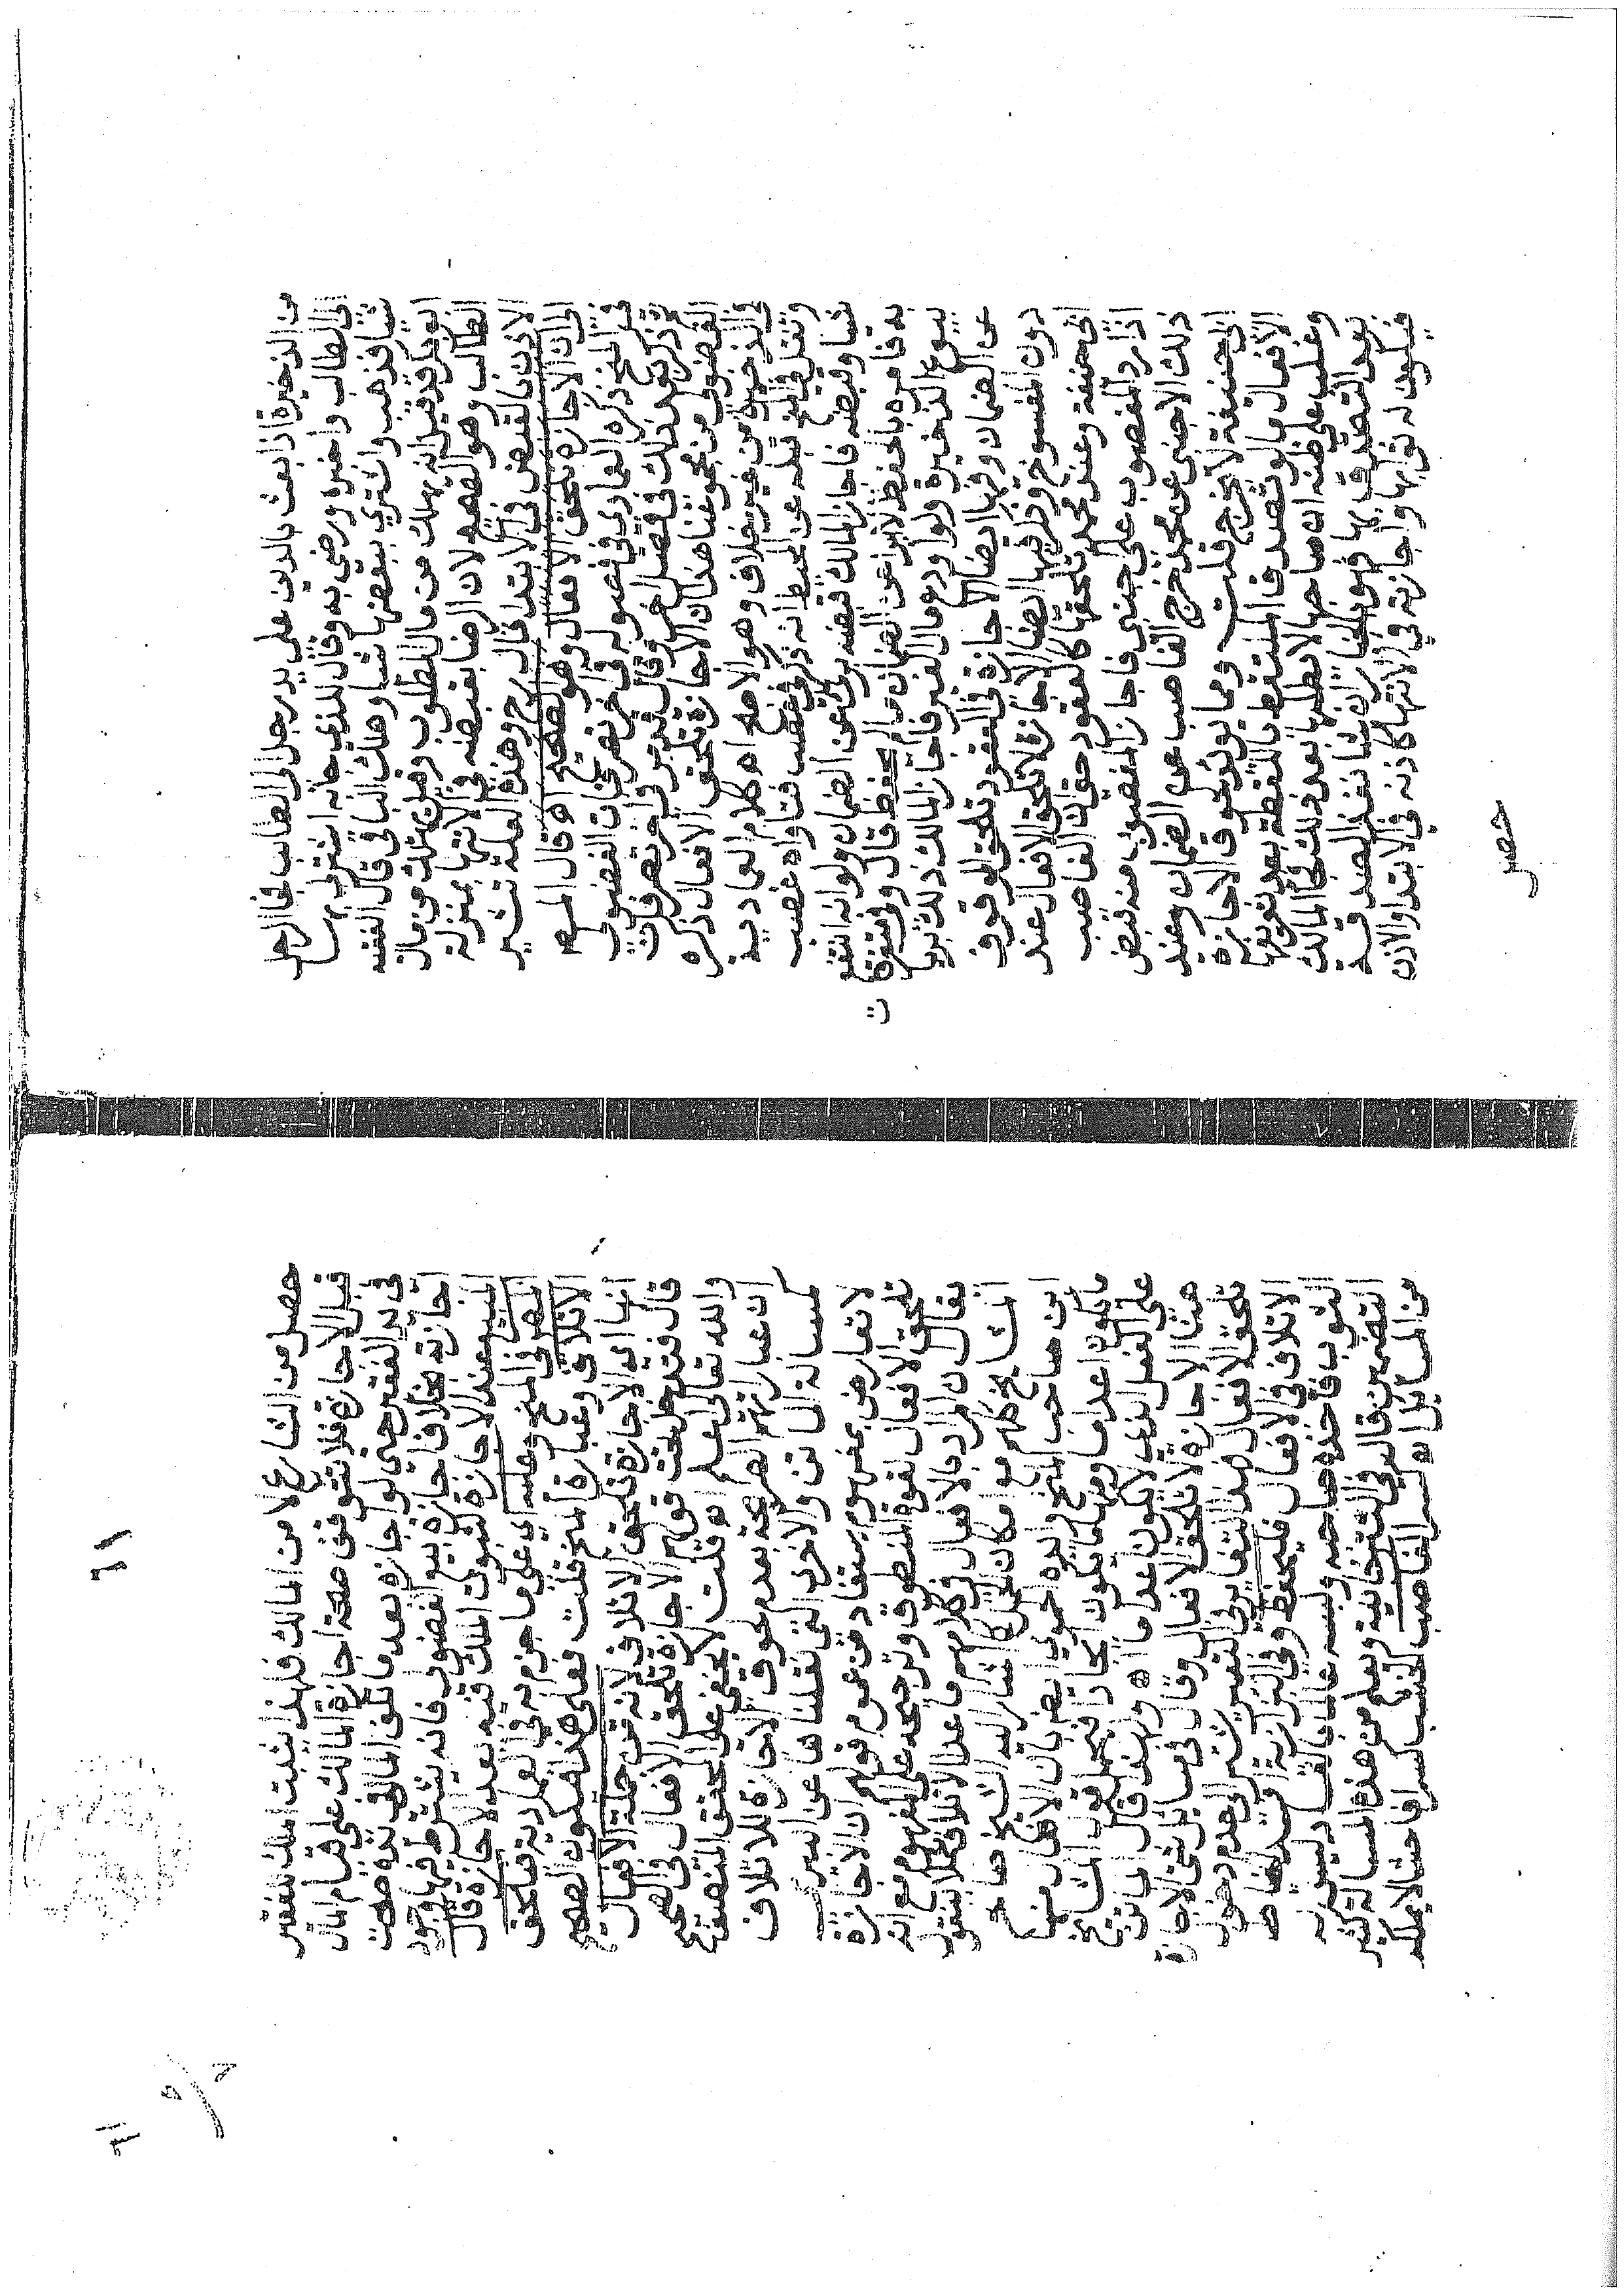 من الذخيرة اذا بعث بالدين على يد رجل الى الطالب فجا الرجل
الى الطالب واخبره ورضي به وقال للذي جا به اشتر لي بها
شيئا فذهب واشتري ببعضها شيا وهلك الباقي قال الفقيه
ابو بكر قد قيل انه يهلك من مال المطلوب وقيل يهلك من مال
الطالب وهو الصحيح لان الرضا بقبضه في الانتها بمنزلة
الاذن بالقبض في الابتدا قال رح وهذه العلة تشير
الى ان الاجازة تلحق الافعال وهو الصحيح اه قال المص
في المنح ذكره العمادي في فصوله في اخر تصرفات الفضولي
ثم ذكر بعد ذلك في فصل اخر وقال قد مر في اخر تصرفات
الفضولي من مجموعنا هذا ان الاجازة تلحق الافعال ذكره
في الذخيرة من غير خلاف وهو الاصح اه كلام العمادية
ونقل في المنح قبله عن المحيط انه ذكر في غصب فتاواه غصب
شيا وقبضه فاجاز المالك قبضه برئ عن الضمان ولو انه انتفع
به فامره بالحفظ لا يبرا عن الضمان ما لم يحفظ قال وفي متفرقات
بيوع الذخيرة ولو اودع مال الغير فاجاز المالك ذلك يبرا
عن الضمان وفيها ايضا الاجازة في العقود تلحق الموقوف
دون المفسوخ وذكر فيها ايضا الاجازة لا تلحق الافعال عند
ابي حنيفة وعند محمد تلحقها كالعقود حتى ان الغاصب
اذا رد المغصوب على اجنبي فاجاز المغصوب منه قبض
ذلك الاجنبي عن محمد خرج الغاصب عن الضمان وعند
ابي حنيفة لا يخرج قلت ومما يويد لحوق الاجازة
الافعال ما لو تصدق الملتقط باللقطة بعد تعريفها
وغلب على ظنه ان صاحبها لا يطلبها بعد ذلك فجا المالك
بعد التصدق بها فهو بالخيار ان شا نفذ الصدقة
فيكون له ثوابها واجازته في الانتها كاذنه في الابتدا والاذن
حصل
٦١
حصل من الشارع لا من المالك فلهذا يثبت الملك للفقير
قبل الاجازة فلا تتوقف صحة اجازة المالك على قيام المال
في يد الفقير حتى لو اجازه بعد ما تلف المال في يده صحت
اجازته بخلاف اجازة بيع الفضولي فانه يشترط فيها وجود
المبيع عند الاجازة لثبوت الملك فيه بعد الاجازة قال
المص في المنح وعليه اي على ما جزم به في العمادية فتلحق
الاتلاف وعبارة المنح قلت فعلى هذا فيكون الصحيح
انها اي الاجازة تلحق الاتلاف لانه من جملة الافعال
قال فقد دخل تحت قولهم الاجازة تلحق الافعال في الصحيح
والله تعالى اعلم اه قلت لا يخفى على المحقق المنصف
ان عباراتهم الصريحة بعدم لحوق الاجازة للاتلاف
كمسالة الماتن والاخرى التي نقلناها عن البيري
لا تعارض بمفهوم يستفاد من عموم قولهم ان الاجازة
تلحق الافعال لقوة المنطوق وترجيحه على المفهوم مع انه
يقال ان المراد بالافعال في كلامهم ما عدا الاتلاف فلا
المشايخ كلهم مع امكان الحمل كما اشار اليه الشيخ صالح
ابن صاحب المنح والده ايضا بان الافعال منها
ما يكون اعداما ومنها ما يكون ايجادا فيحمل قول المشايخ
على الفعل الذي لا يكون اعداما اه ولهذا قال الماتن
هنا الاجازة لا تلحق الافعال وقال في مسايل شتى الاجازة
تلحق الافعال فهذا التغاير في التعبير يشير الى عدم دخول
الاتلاف في الافعال فليحفظ وفي البزازية افسد الخياط
الثوب فاخذه صاحبه ولبسه عالما بالفساد ليس له
التضمين قال في التتارخانية ويعلم من هذه المسالة كثير
من المسايل اه كسر الغاصب الخشب كسرا فاحشا لا يملكه